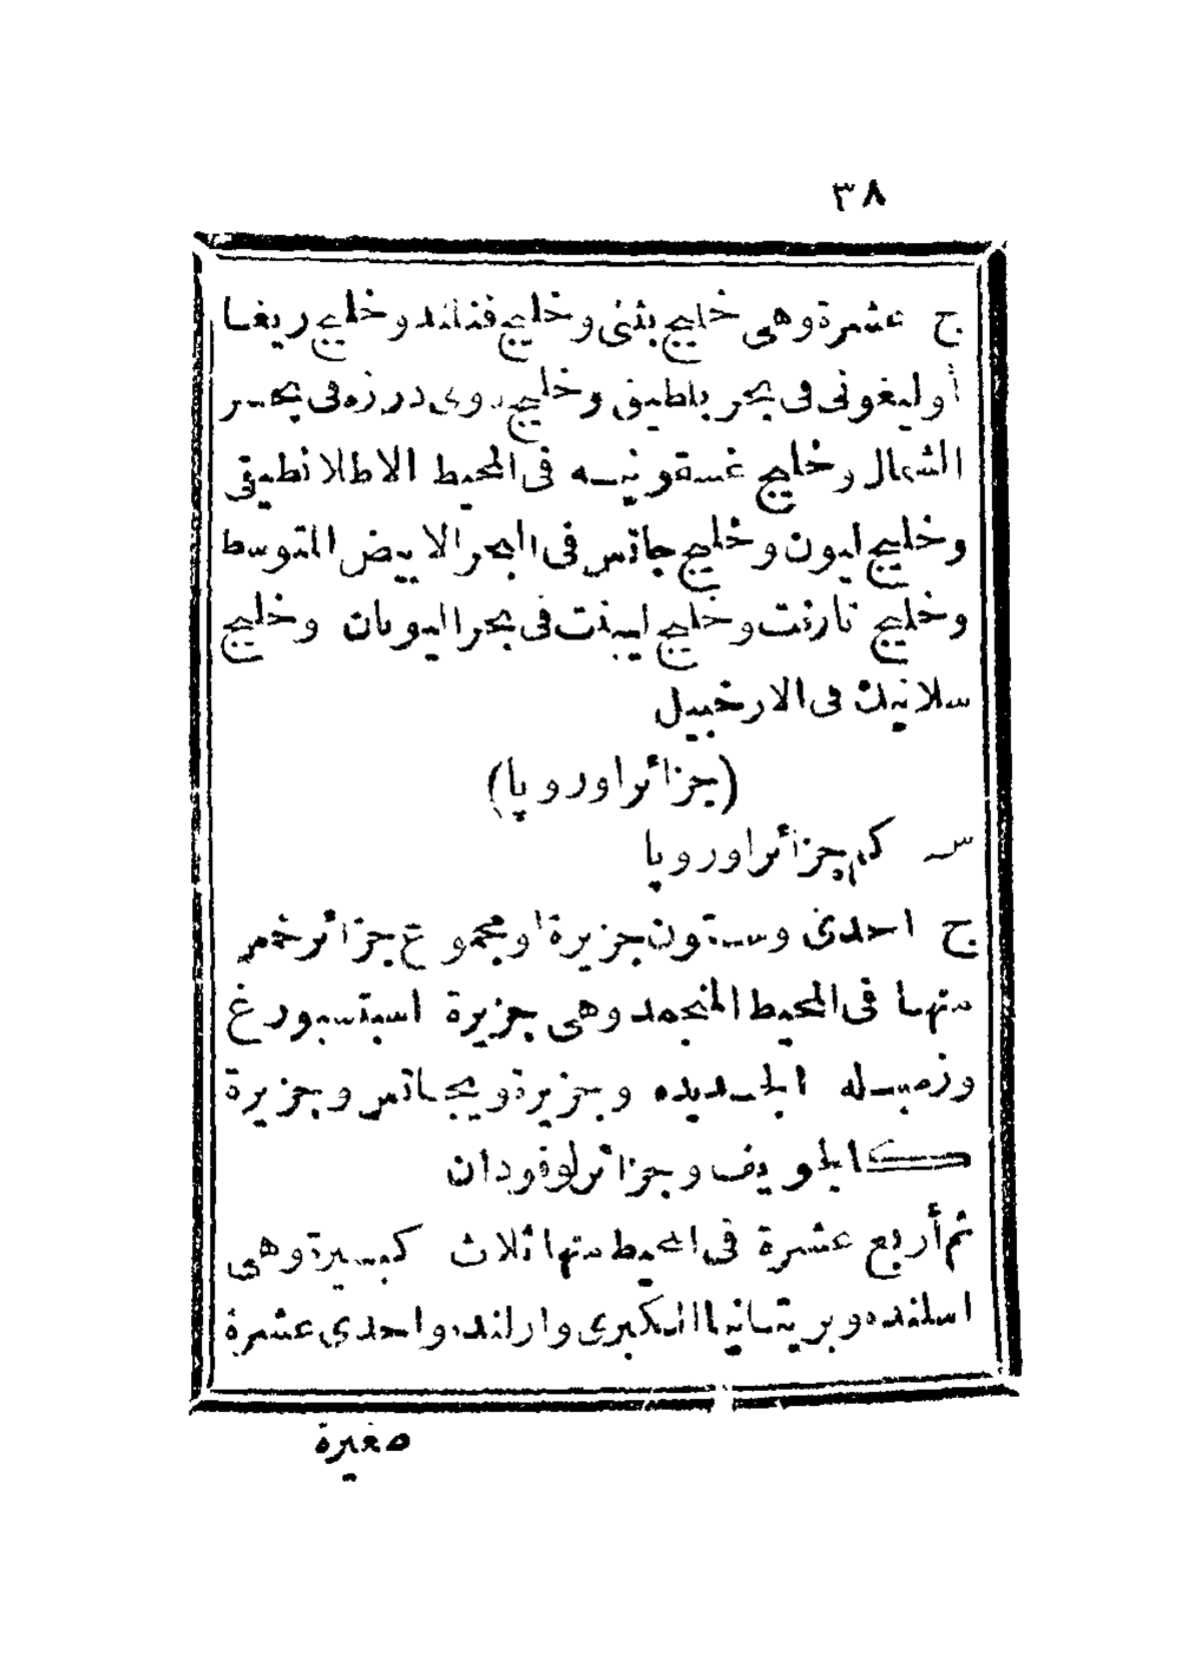 ٣٨
ج عشرة وهى خليج بثنى وخليج فنلند وخليج ريغا
أوليغونى فى بحر بلطيق وخليج زوى درزه فى بحر
الشمال وخليج غسقونيه فى المحيط الاطلانطيقى
وخليج ليون وخليج جانس فى البحر الابيض المتوسط
وخليج تارنت وخليج ليبنت فى بحر اليونان وخليج
سلانيك فى الارخبيل
(جزائر اوروپا)
س كم جزائر اوروپا
ج احدى وستون جزيرة او مجموع جزائر خمس
منها فى المحيط المنجمد وهى جزيرة اسبتسبورغ
وزمبله الجديده وجزيرة ويجاتس وجزيرة
كالجويف وجزائر لوفودان
ثم أربع عشرة فى المحيط منها ثلاث كبيرة وهى
اسلنده وبريتانيا الكبرى وارلنده واحدى عشرة
صغيرة